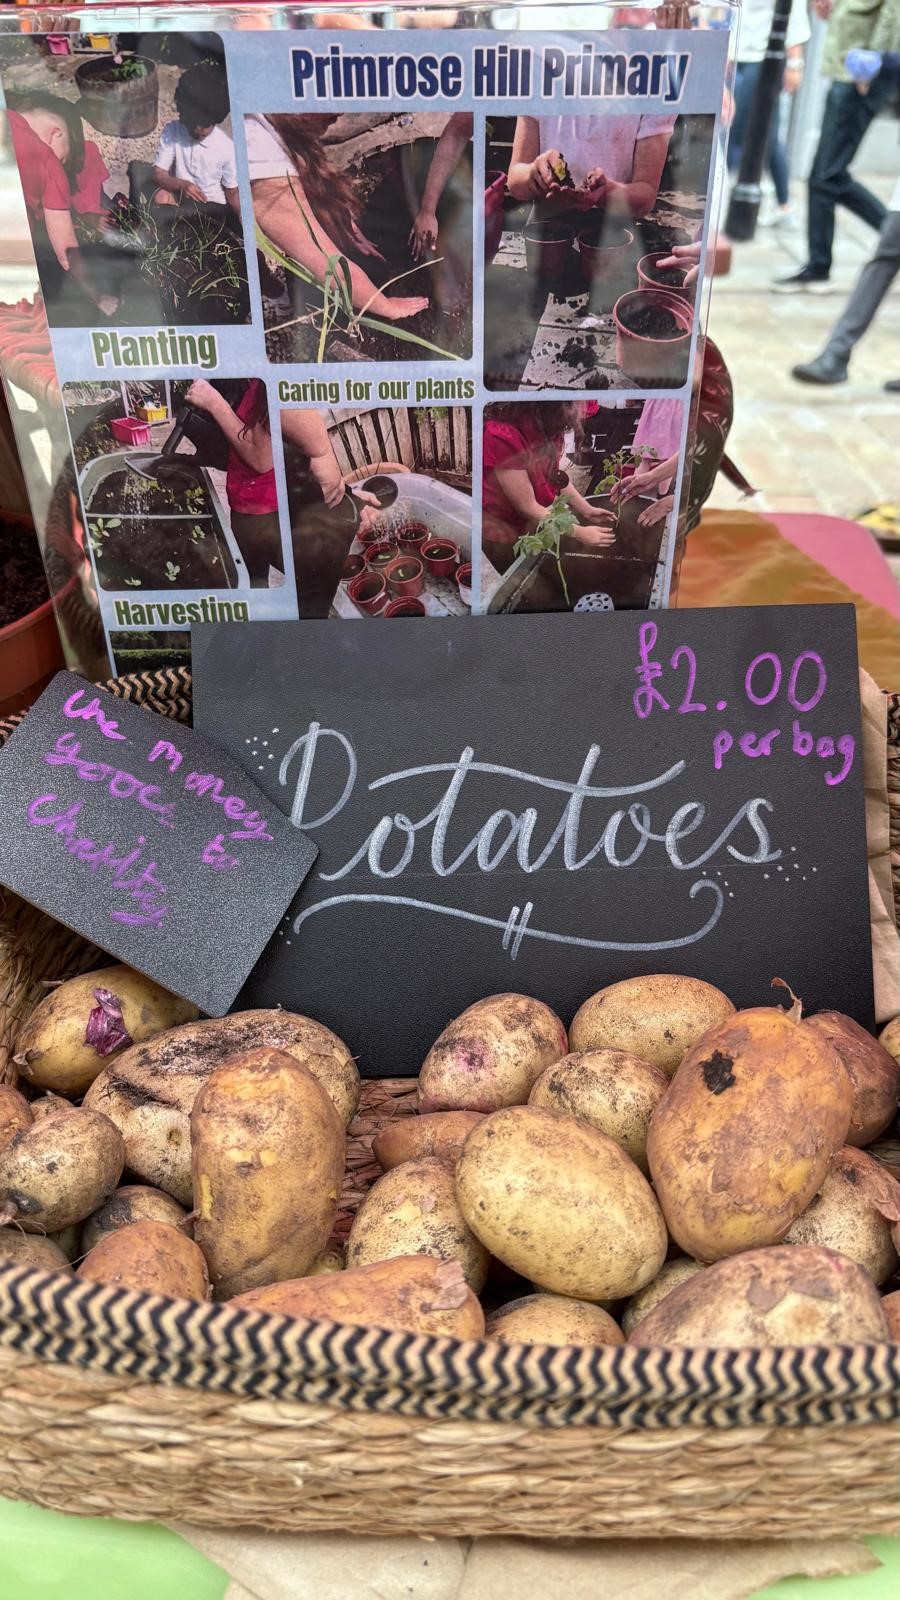 Primrose Hill Primary
Planting
Caring for our plants
Harvesting
£2.00
per bag
Potatoes
the money
goes to
charity